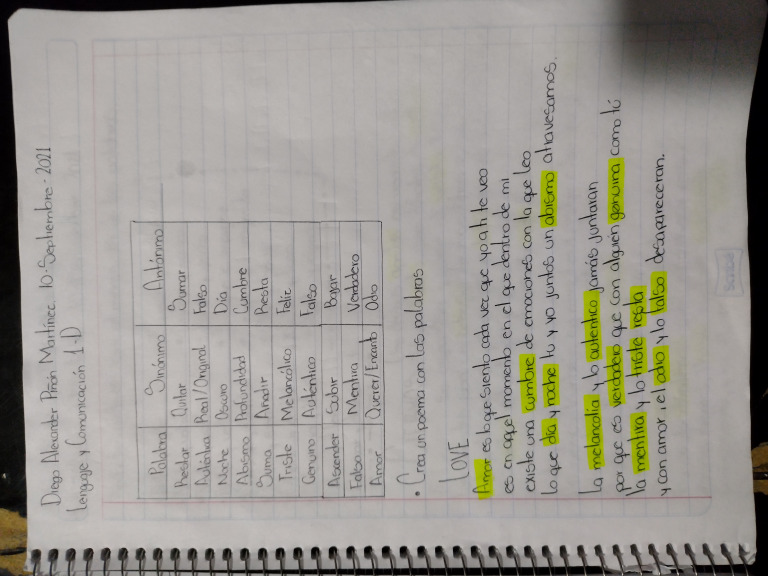 Diego Alexander Piñón Martínez 10-Septiembre-2021
Lenguaje y Comunicación 1-D
Palabra Sinónimo Antónimo
Restar Quitar Sumar
Auténtica Real/Original Falso
Noche Oscuro Día
Abismo Profundidad Cumbre
Suma Añadir Resta
Triste Melancólico Feliz
Genuino Auténtico Falso
Ascender Subir Bajar
Falso Mentira Verdadero
Amor Querer/Encanto Odio
• Crea un poema con las palabras
LOVE
Amor es lo que siento cada vez que yo a ti te veo
es en aquel momento en el que dentro de mi
existe una cumbre de emociones con la que leo
lo que día y noche tu y yo juntos un abismo atravesamos.
La melancolía y lo autentico jamás juntaran
por que es verdadero que con alguién genuina como tú
la mentira y lo triste resta
y con amor, el odio y lo falso desapareceran.